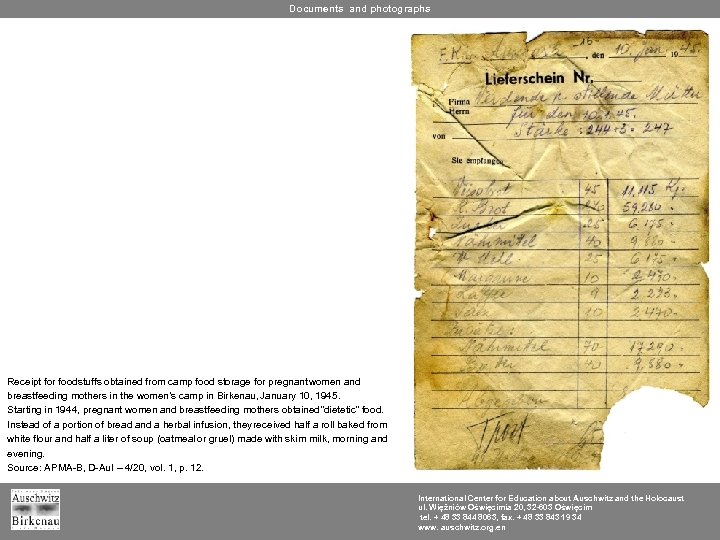 Documents and photographs
15
10. Jan. 1945.
, den 19
Lieferschein Nr.
Firma Werdende u. stillende Mütter
Herrn für den 10.1.45.
von Stärke = 244+3 = 247
Sie empfangen
45 11,115 Kg.
K. Brot 240 59,280
Zucker 25 6,175
Nährmittel 40 9,880
W. Mehl 25 6,175
Margarine 10 2,470
Kaffee 9 2,223
10 2,470
Nährmittel 70 17,290
40 9,880
Receipt for foodstuffs obtained from camp food storage for pregnant women and
breastfeeding mothers in the women's camp in Birkenau, January 10, 1945.
Starting in 1944, pregnant women and breastfeeding mothers obtained "dietetic" food.
Instead of a portion of bread and a herbal infusion, they received half a roll baked from
white flour and half a liter of soup (oatmeal or gruel) made with skim milk, morning and
evening.
Source: APMA-B, D-AuI – 4/20, vol. 1, p. 12.
Auschwitz
Birkenau
International Center for Education about Auschwitz and the Holocaust
ul. Więźniów Oświęcimia 20, 32-603 Oświęcim
tel. + 48 33 844 8063, fax. + 48 33 843 19 34
www. auschwitz.org.en